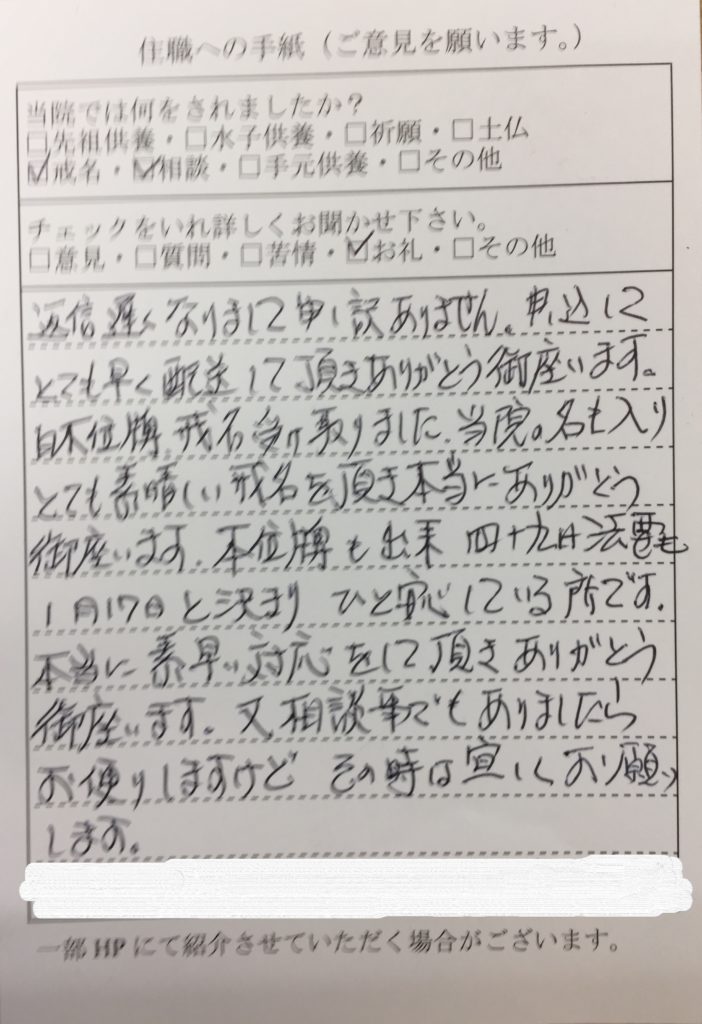 住職への手紙（ご意見を願います。）
当院では何をされましたか？
□先祖供養・□水子供養・□祈願・□土仏
☑戒名・☑相談・□手元供養・□その他
チェックをいれ詳しくお聞かせ下さい。
□意見・□質問・□苦情・☑お礼・□その他
返信遅くなりまして申し訳ありません。申し込して
とても早く配送して頂きありがとう御座います。
白木位牌、戒名受け取りました。当院の名も入り
とても素晴しい戒名を頂き本当にありがとう
御座います。本位牌も出来 四十九日法要も
1月17日と決まり ひと安心している所です。
本当に素早い対応をして頂きありがとう
御座います。又、相談事でもありましたら
お便りしますけど その時は宜しくお願い
します。
一部HPにて紹介させていただく場合がございます。